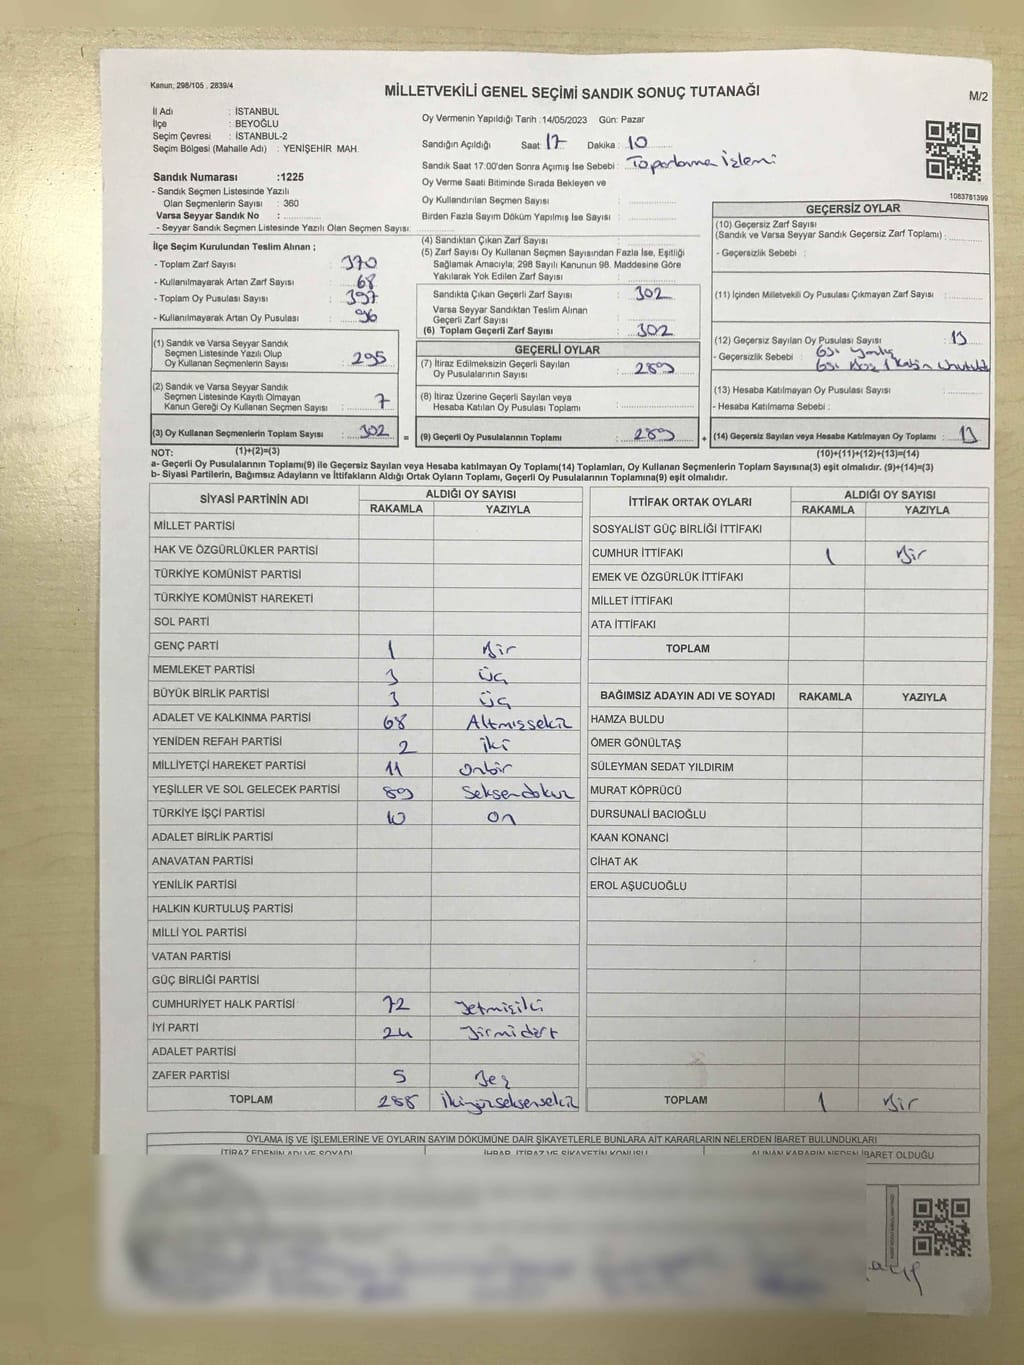 Kanun, 298/105 . 2839/4
MİLLETVEKİLİ GENEL SEÇİMİ SANDIK SONUÇ TUTANAĞI
M/2
İl Adı : İSTANBUL
İlçe : BEYOĞLU
Seçim Çevresi : İSTANBUL-2
Seçim Bölgesi (Mahalle Adı) : YENİŞEHİR MAH.
Sandık Numarası :1225
- Sandık Seçmen Listesinde Yazılı
Olan Seçmenlerin Sayısı : 360
Varsa Seyyar Sandık No :
- Seyyar Sandık Seçmen Listesinde Yazılı Olan Seçmen Sayısı:
Oy Vermenin Yapıldığı Tarih :14/05/2023 Gün: Pazar
Sandığın Açıldığı Saat 17 Dakika : 10
Sandık Saat 17:00'den Sonra Açımış İse Sebebi : Toparlanma İzlemi
Oy Verme Saati Bitiminde Sırada Bekleyen ve
Oy Kullandırılan Seçmen Sayısı :
Birden Fazla Sayım Döküm Yapılmış İse Sayısı :
1083781399
İlçe Seçim Kurulundan Teslim Alınan ;
- Toplam Zarf Sayısı : 370
- Kullanılmayarak Artan Zarf Sayısı : 68
- Toplam Oy Pusulası Sayısı : 397
- Kullanılmayarak Artan Oy Pusulası : 96
(1) Sandık ve Varsa Seyyar Sandık
Seçmen Listesinde Yazılı Olup
Oy Kullanan Seçmenlerin Sayısı : 295
(2) Sandık ve Varsa Seyyar Sandık
Seçmen Listesinde Kayıtlı Olmayan
Kanun Gereği Oy Kullanan Seçmen Sayısı : 7
(3) Oy Kullanan Seçmenlerin Toplam Sayısı : 302 =
(4) Sandıktan Çıkan Zarf Sayısı :
(5) Zarf Sayısı Oy Kullanan Seçmen Sayısından Fazla İse, Eşitliği
Sağlamak Amacıyla; 298 Sayılı Kanunun 98. Maddesine Göre
Yakılarak Yok Edilen Zarf Sayısı :
Sandıkta Çıkan Geçerli Zarf Sayısı : 302
Varsa Seyyar Sandıktan Teslim Alınan
Geçerli Zarf Sayısı :
(6) Toplam Geçerli Zarf Sayısı : 302
GEÇERLİ OYLAR
(7) İtiraz Edilmeksizin Geçerli Sayılan
Oy Pusulalarının Sayısı : 289
(8) İtiraz Üzerine Geçerli Sayılan veya
Hesaba Katılan Oy Pusulası Toplamı :
(9) Geçerli Oy Pusulalarının Toplamı : 289 +
GEÇERSİZ OYLAR
(10) Geçersiz Zarf Sayısı
(Sandık ve Varsa Seyyar Sandık Geçersiz Zarf Toplamı) :
- Geçersizlik Sebebi :
(11) İçinden Milletvekili Oy Pusulası Çıkmayan Zarf Sayısı :
(12) Geçersiz Sayılan Oy Pusulası Sayısı : 13
- Geçersizlik Sebebi :
(13) Hesaba Katılmayan Oy Pusulası Sayısı :
- Hesaba Katılmama Sebebi :
(14) Geçersiz Sayılan veya Hesaba Katılmayan Oy Toplamı : 13
NOT: (1)+(2)=(3) (10)+(11)+(12)+(13)=(14)
a- Geçerli Oy Pusulalarının Toplamı(9) ile Geçersiz Sayılan veya Hesaba katılmayan Oy Toplamı(14) Toplamları, Oy Kullanan Seçmenlerin Toplam Sayısına(3) eşit olmalıdır. (9)+(14)=(3)
b- Siyasi Partilerin, Bağımsız Adayların ve İttifakların Aldığı Ortak Oyların Toplamı, Geçerli Oy Pusulalarının Toplamına(9) eşit olmalıdır.
SİYASİ PARTİNİN ADI ALDIĞI OY SAYISI
RAKAMLA YAZIYLA
MİLLET PARTİSİ
HAK VE ÖZGÜRLÜKLER PARTİSİ
TÜRKİYE KOMÜNİST PARTİSİ
TÜRKİYE KOMÜNİST HAREKETİ
SOL PARTİ
GENÇ PARTİ 1 Bir
MEMLEKET PARTİSİ 3 Üç
BÜYÜK BİRLİK PARTİSİ 3 Üç
ADALET VE KALKINMA PARTİSİ 68 Altmışsekiz
YENİDEN REFAH PARTİSİ 2 iki
MİLLİYETÇİ HAREKET PARTİSİ 11 onbir
YEŞİLLER VE SOL GELECEK PARTİSİ 89 Seksendokuz
TÜRKİYE İŞÇİ PARTİSİ 10 on
ADALET BİRLİK PARTİSİ
ANAVATAN PARTİSİ
YENİLİK PARTİSİ
HALKIN KURTULUŞ PARTİSİ
MİLLİ YOL PARTİSİ
VATAN PARTİSİ
GÜÇ BİRLİĞİ PARTİSİ
CUMHURİYET HALK PARTİSİ 72 Yetmişiki
İYİ PARTİ 24 Yirmidört
ADALET PARTİSİ
ZAFER PARTİSİ 5 Beş
TOPLAM 288 İkiyüzseksensekiz
İTTİFAK ORTAK OYLARI ALDIĞI OY SAYISI
RAKAMLA YAZIYLA
SOSYALİST GÜÇ BİRLİĞİ İTTİFAKI
CUMHUR İTTİFAKI 1 Bir
EMEK VE ÖZGÜRLÜK İTTİFAKI
MİLLET İTTİFAKI
ATA İTTİFAKI
TOPLAM
BAĞIMSIZ ADAYIN ADI VE SOYADI RAKAMLA YAZIYLA
HAMZA BULDU
ÖMER GÖNÜLTAŞ
SÜLEYMAN SEDAT YILDIRIM
MURAT KÖPRÜCÜ
DURSUNALİ BACIOĞLU
KAAN KONANCİ
CİHAT AK
EROL AŞUCUOĞLU
TOPLAM 1 Bir
OYLAMA İŞ VE İŞLEMLERİNE VE OYLARIN SAYIM DÖKÜMÜNE DAİR ŞİKAYETLERLE BUNLARA AİT KARARLARIN NELERDEN İBARET BULUNDUKLARI
İTİRAZ EDENİN ADI VE SOYADI İHBAR, İTİRAZ VE ŞİKAYETİN KONUSU ALINAN KARARIN NEDEN İBARET OLDUĞU